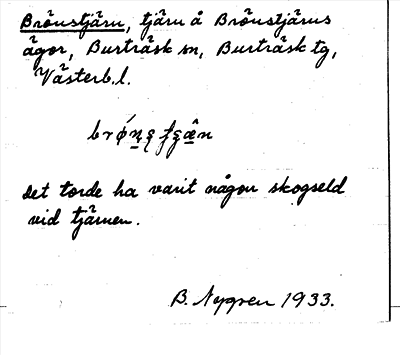 Brönstjärn, tjärn å Brönstjärns
ägor, Burträsk sn, Burträsk tg,
Västerb.l.
det torde ha varit någon skogseld
vid tjärnen.
B. Nygren 1933.